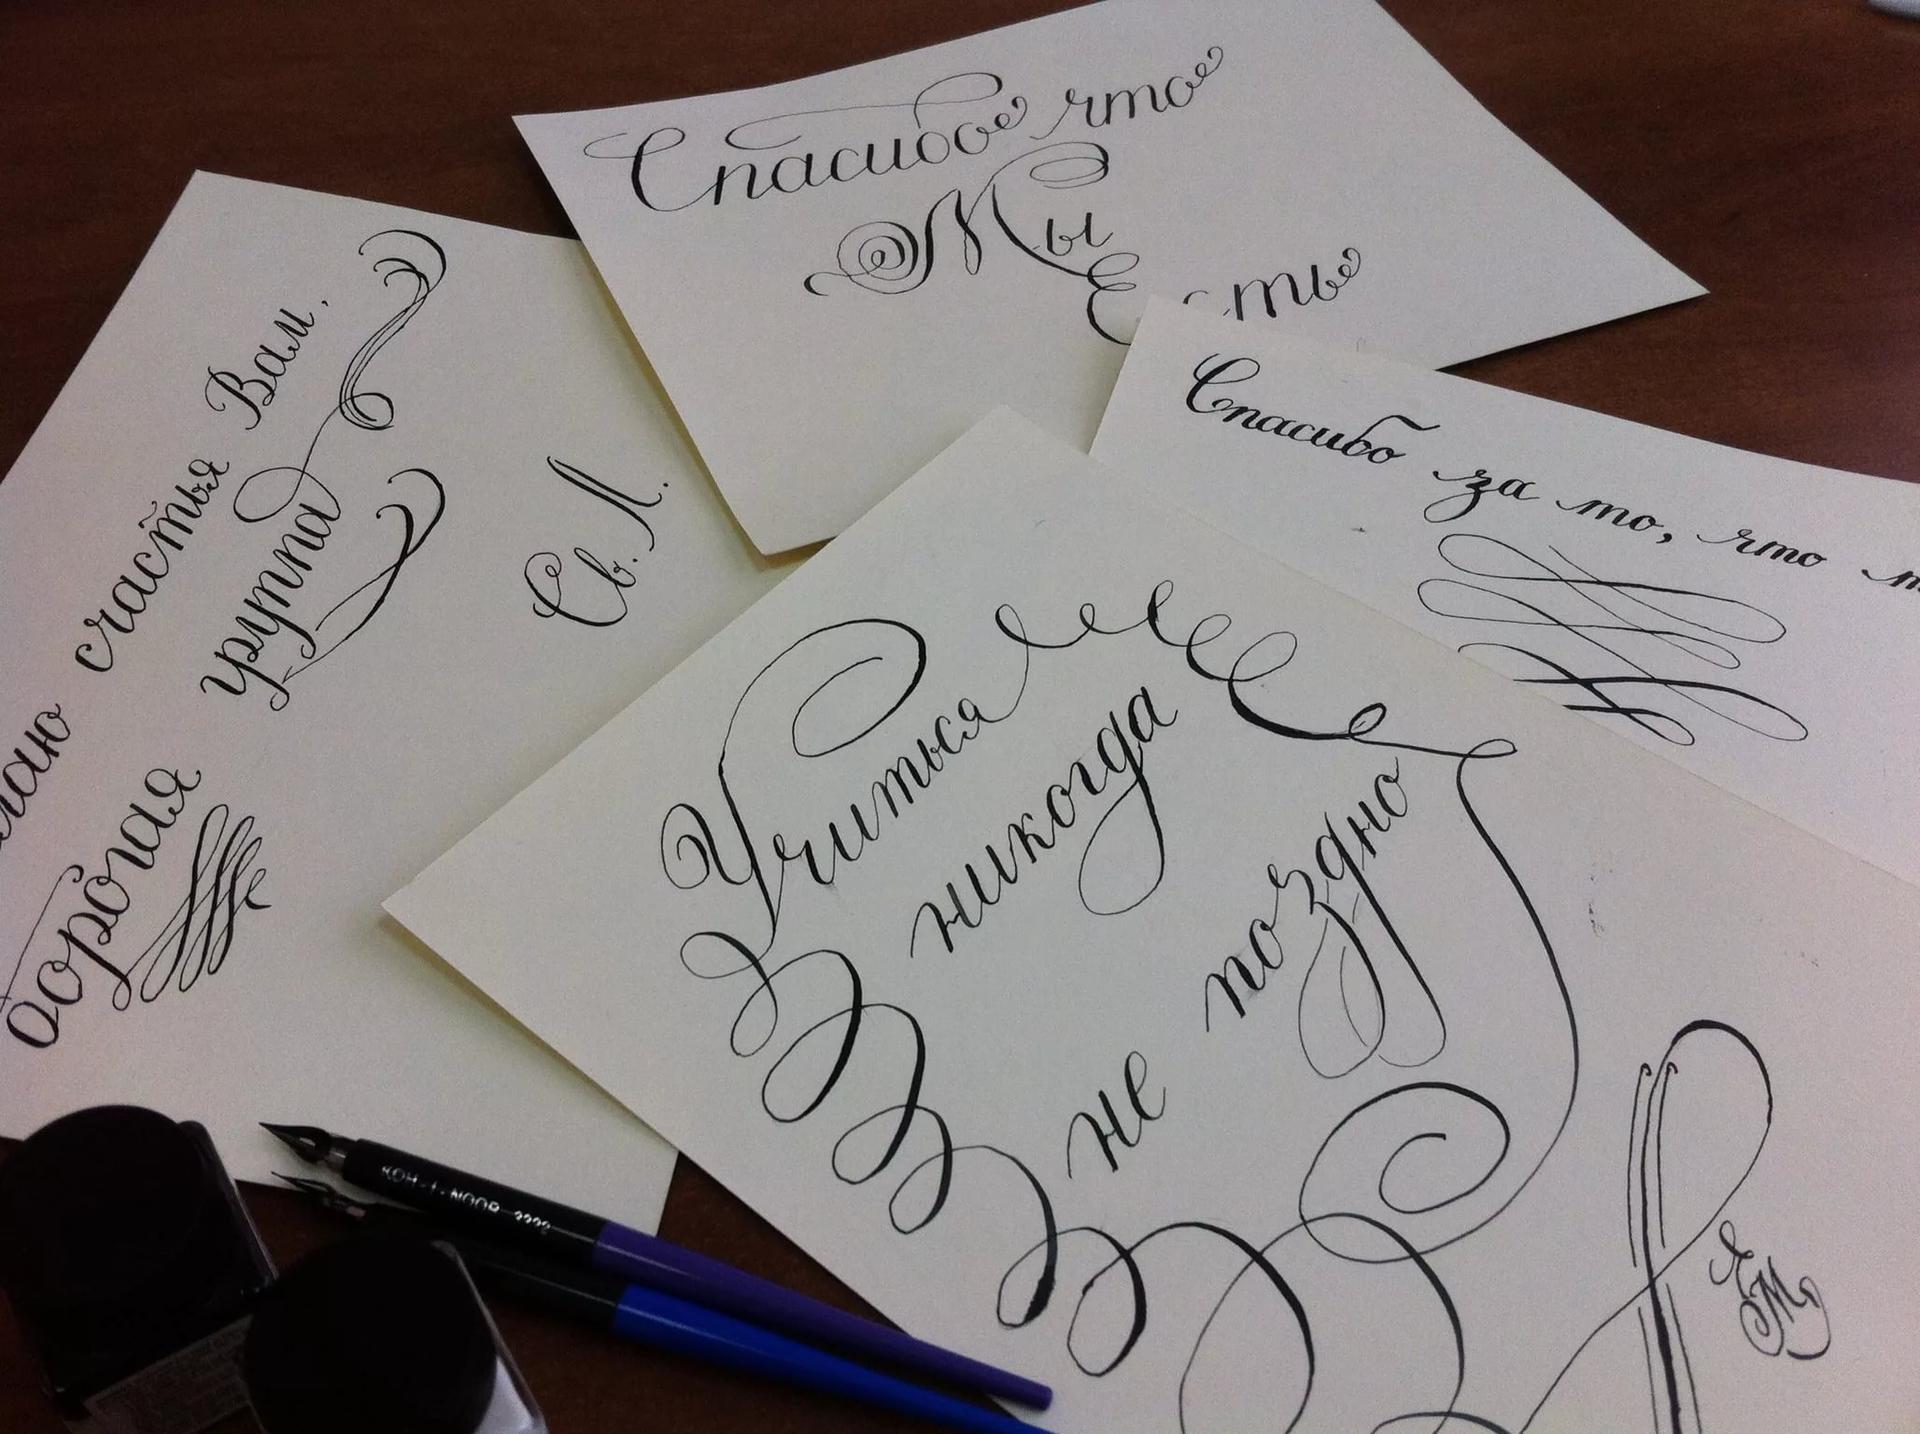 Спасибо что
Мы
счастья Вам.
дорогая группа
Св. Л.
Спасибо за то, что
Учиться
никогда
не поздно
ЕМ
KOH-I-NOOR